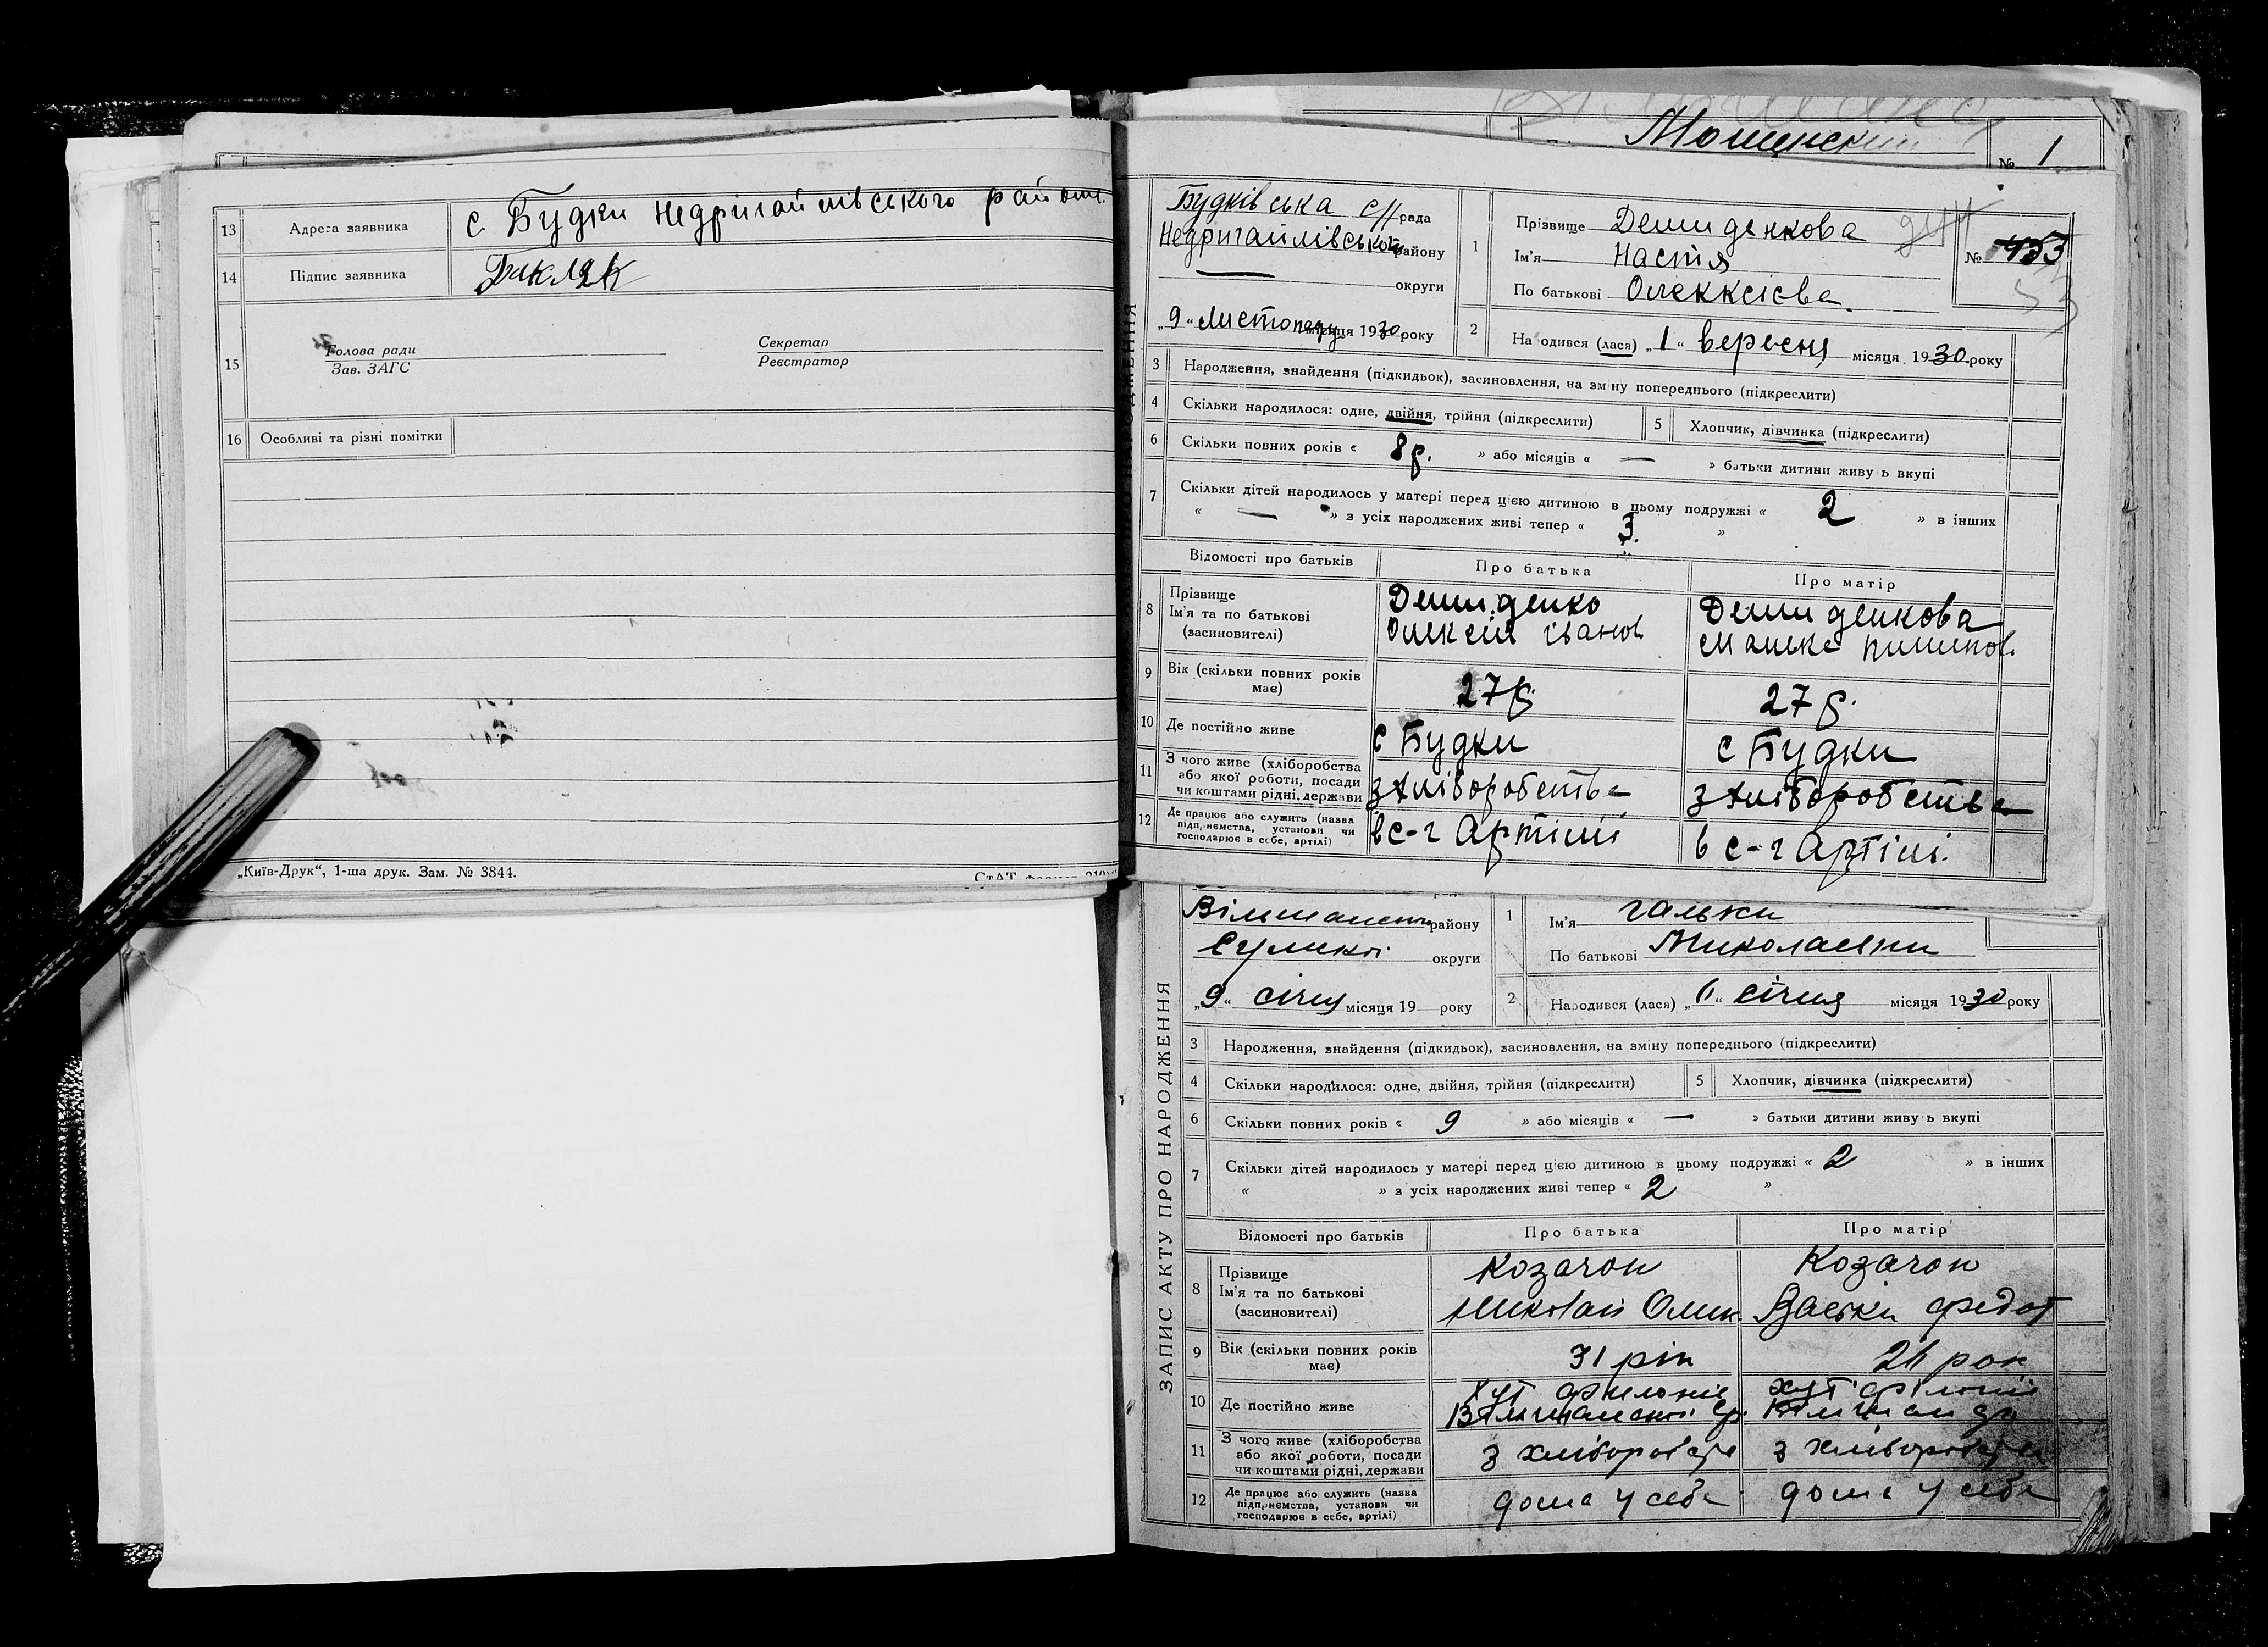 13 Адреса заявника с. Будки Недригайлівського району
14 Підпис заявника Бикляк
15 Голова ради Секретар
Зав. ЗАГС Реєстратор
16 Особливі та різні помітки
„Київ-Друк“, 1-ша друк. Зам. № 3844.
№ 1
Будківська с/рада
Недригайлівського району
округи
„9“ листопаду місяця 1930 року
1 Прізвище Демиденкова
Ім'я Настя
По батькові Олекксієва
№ 453
53
2 Народився (лася) „1“ вересня місяця 1930 року
3 Народження, знайдення (підкидьок), засиновлення, на зміну попереднього (підкреслити)
4 Скільки народилося: одне, двійня, трійня (підкреслити) 5 Хлопчик, дівчинка (підкреслити)
6 Скільки повних років « 8 р. » або місяців « — » батьки дитини живуть вкупі
7 Скільки дітей народилось у матері перед цією дитиною в цьому подружжі « 2 » в інших
« — » з усіх народжених живі тепер « 3. »
Відомості про батьків Про батька Про матір
8 Прізвище
Ім'я та по батькові
(засиновителі)
Демиденко
Олексій Іванов
Демиденкова
Манька Пилипов.
9 Вік (скільки повних років має) 27 р. 27 р.
10 Де постійно живе с Будки с Будки
11 З чого живе (хліборобства
або якої роботи, посади
чи коштами рідні, держави
з хліборобства з хліборобства
12 Де працює або служить (назва
підприємства, установи чи
господарює в себе, артілі)
в с-г Артілі в с-г Артілі.
ЗАПИС АКТУ ПРО НАРОДЖЕННЯ
району
округи
„9“ січня місяця 19 року
1 Ім'я Гальки
По батькові Миколаевни
2 Народився (лася) січня місяця 1930 року
3 Народження, знайдення (підкидьок), засиновлення, на зміну попереднього (підкреслити)
4 Скільки народилося: одне, двійня, трійня (підкреслити) 5 Хлопчик, дівчинка (підкреслити)
6 Скільки повних років « 9 » або місяців « — » батьки дитини живуть вкупі
7 Скільки дітей народилось у матері перед цією дитиною в цьому подружжі « 2 » в інших
« » з усіх народжених живі тепер « 2 »
Відомості про батьків Про батька Про матір
8 Прізвище
Ім'я та по батькові
(засиновителі)
Козачок
Миколай Олик.
Козачок
Васьки Федот
9 Вік (скільки повних років має) 31 рік рок
10 Де постійно живе
11 З чого живе (хліборобства
або якої роботи, посади
чи коштами рідні, держави
з хліборобств з хліборобств
12 Де працює або служить (назва
підприємства, установи чи
господарює в себе, артілі)
дома у себе дома у себе